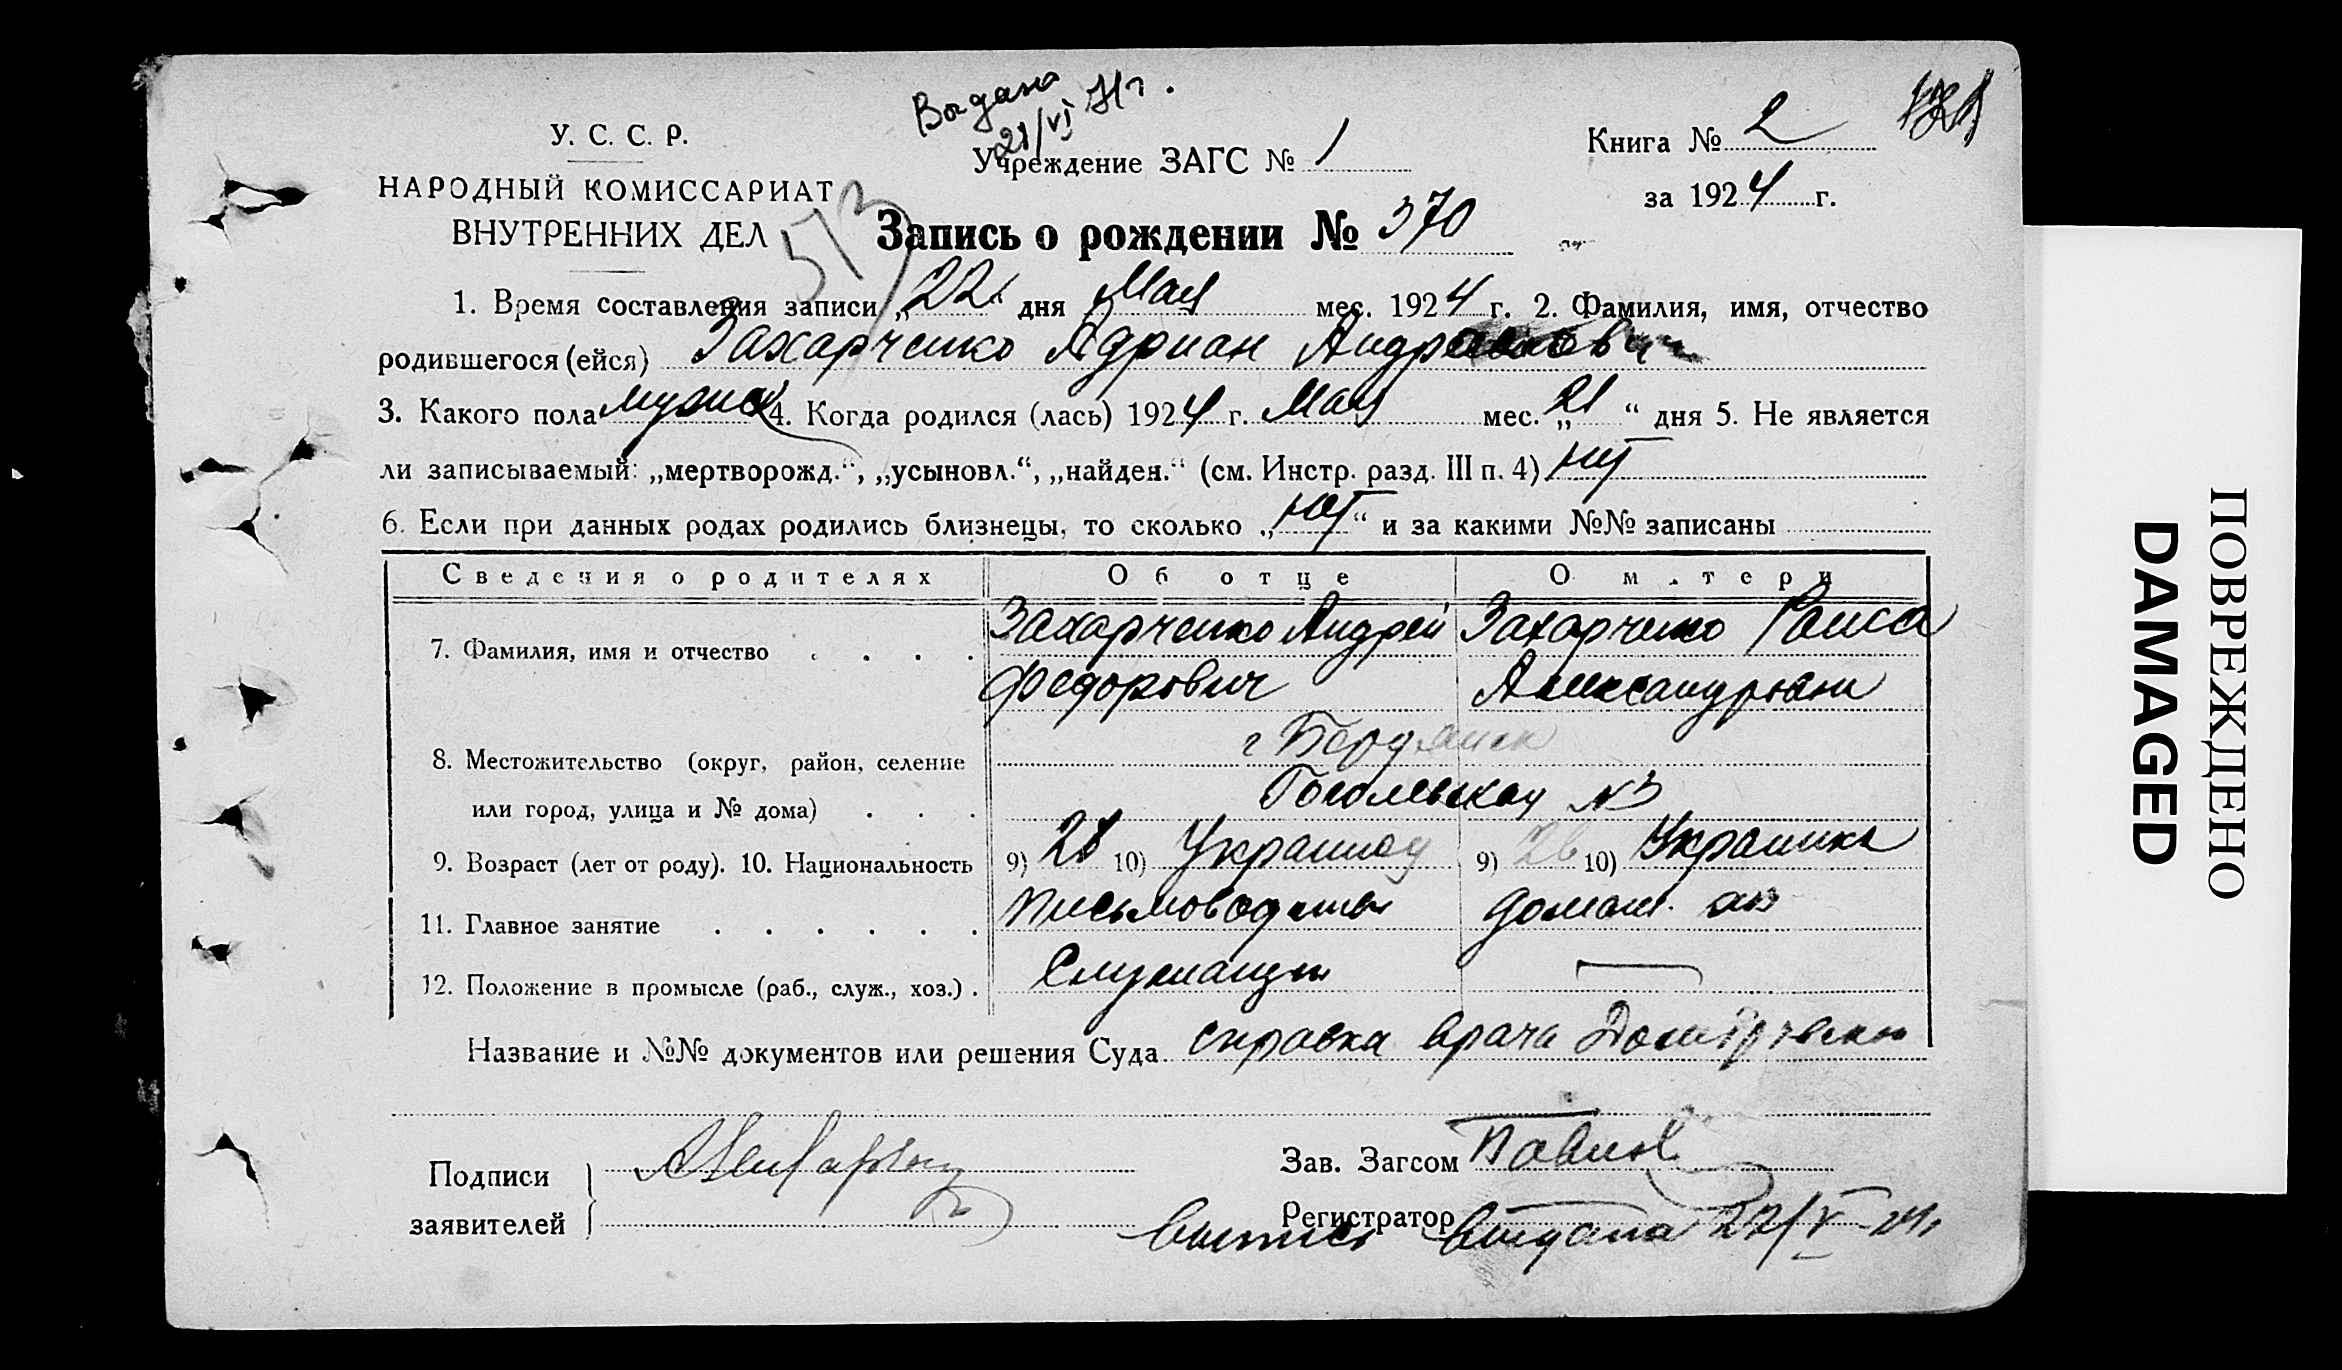 Выдана
21/VI 71г.
У. С. С. Р.
НАРОДНЫЙ КОМИССАРИАТ
ВНУТРЕННИХ ДЕЛ
513
Учреждение ЗАГС № 1
Книга № 2
за 1924 г.
Запись о рождении № 370
1. Время составления записи „22“ дня Мая мес. 1924 г. 2. Фамилия, имя, отчество
родившегося (ейся) Захарченко Адриан
3. Какого пола мужск 4. Когда родился (лась) 1924 г. Мая мес. „21“ дня 5. Не является
ли записываемый: „мертворожд.“, „усыновл.“, „найден.“ (см. Инстр. разд. III п. 4) нет
6. Если при данных родах родились близнецы, то сколько „нет“ и за какими №№ записаны
Сведения о родителях Об отце О матери
7. Фамилия, имя и отчество . . . . Захарченко Андрей Захарченко Раиса
Федорович Александровн
8. Местожительство (округ, район, селение г Бердянск
или город, улица и № дома) . . . Гоголевская №3
9. Возраст (лет от роду). 10. Национальность 9) 28 10) Украинец 9) 26 10) Украинка
11. Главное занятие . . . . . . Письмоводитель домаш. хоз
12. Положение в промысле (раб., служ., хоз.) . Служащий —
Название и №№ документов или решения Суда справка врача
Подписи
заявителей
Зав. Загсом Павлов
Регистратор
выпись выдана 22/V-24г
ПОВРЕЖДЕНО
DAMAGED